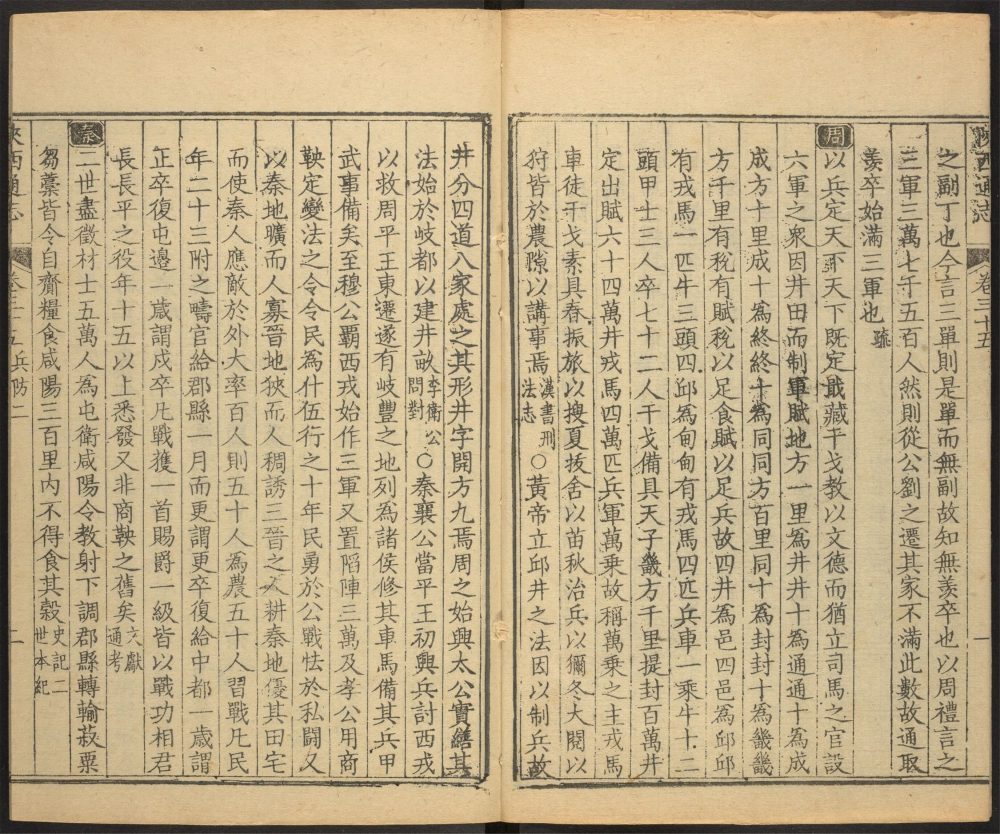 陝西通志 卷三十五 一
之副丁也今言三單則是單而無副故知無羨卒也以周禮言之
三軍三萬七千五百人然則從公劉之遷其家不滿此數故通取
羨卒始滿三軍也疏
周以兵定天下天下既定戢藏干戈教以文德而猶立司馬之官設
六軍之衆因井田而制軍賦地方一里為井井十為通通十為成
成方十里成十為終終十為同同方百里同十為封封十為畿畿
方千里有稅有賦稅以足食賦以足兵故四井為邑四邑為邱邱
有戎馬一匹牛三頭四邱為甸甸有戎馬四匹兵車一乘牛十二
頭甲士三人卒七十二人干戈備具天子畿方千里提封百萬井
定出賦六十四萬井戎馬四萬匹兵軍萬乘故稱萬乘之主戎馬
車徒干戈素具春振旅以搜夏拔舍以苗秋治兵以獮冬大閱以
狩皆於農隙以講事焉漢書刑法志○黃帝立邱井之法因以制兵故
井分四道八家處之其形井字開方九焉周之始興太公實繕其
法始於岐都以建井畝李衛公問對○秦襄公當平王初興兵討西戎
以救周平王東遷遂有岐豐之地列為諸侯修其車馬備其兵甲
武事備矣至穆公霸西戎始作三軍又置陷陣三萬及孝公用商
鞅定變法之令令民為什伍行之十年民勇於公戰怯於私鬬又
以秦地曠而人寡晉地狹而人稠誘三晉之人耕秦地優其田宅
而使秦人應敵於外大率百人則五十人為農五十人習戰凡民
年二十三附之疇官給郡縣一月而更謂更卒復給中都一歲謂
正卒復屯邊一歲謂戍卒凡戰獲一首賜爵一級皆以戰功相君
長長平之役年十五以上悉發又非商鞅之舊矣文獻通考
秦二世盡徵材士五萬人為屯衛咸陽令教射下調郡縣轉輸菽粟
芻藁皆令自齎糧食咸陽三百里內不得食其穀史記二世本紀
陝西通志 卷三十五 兵防一 二